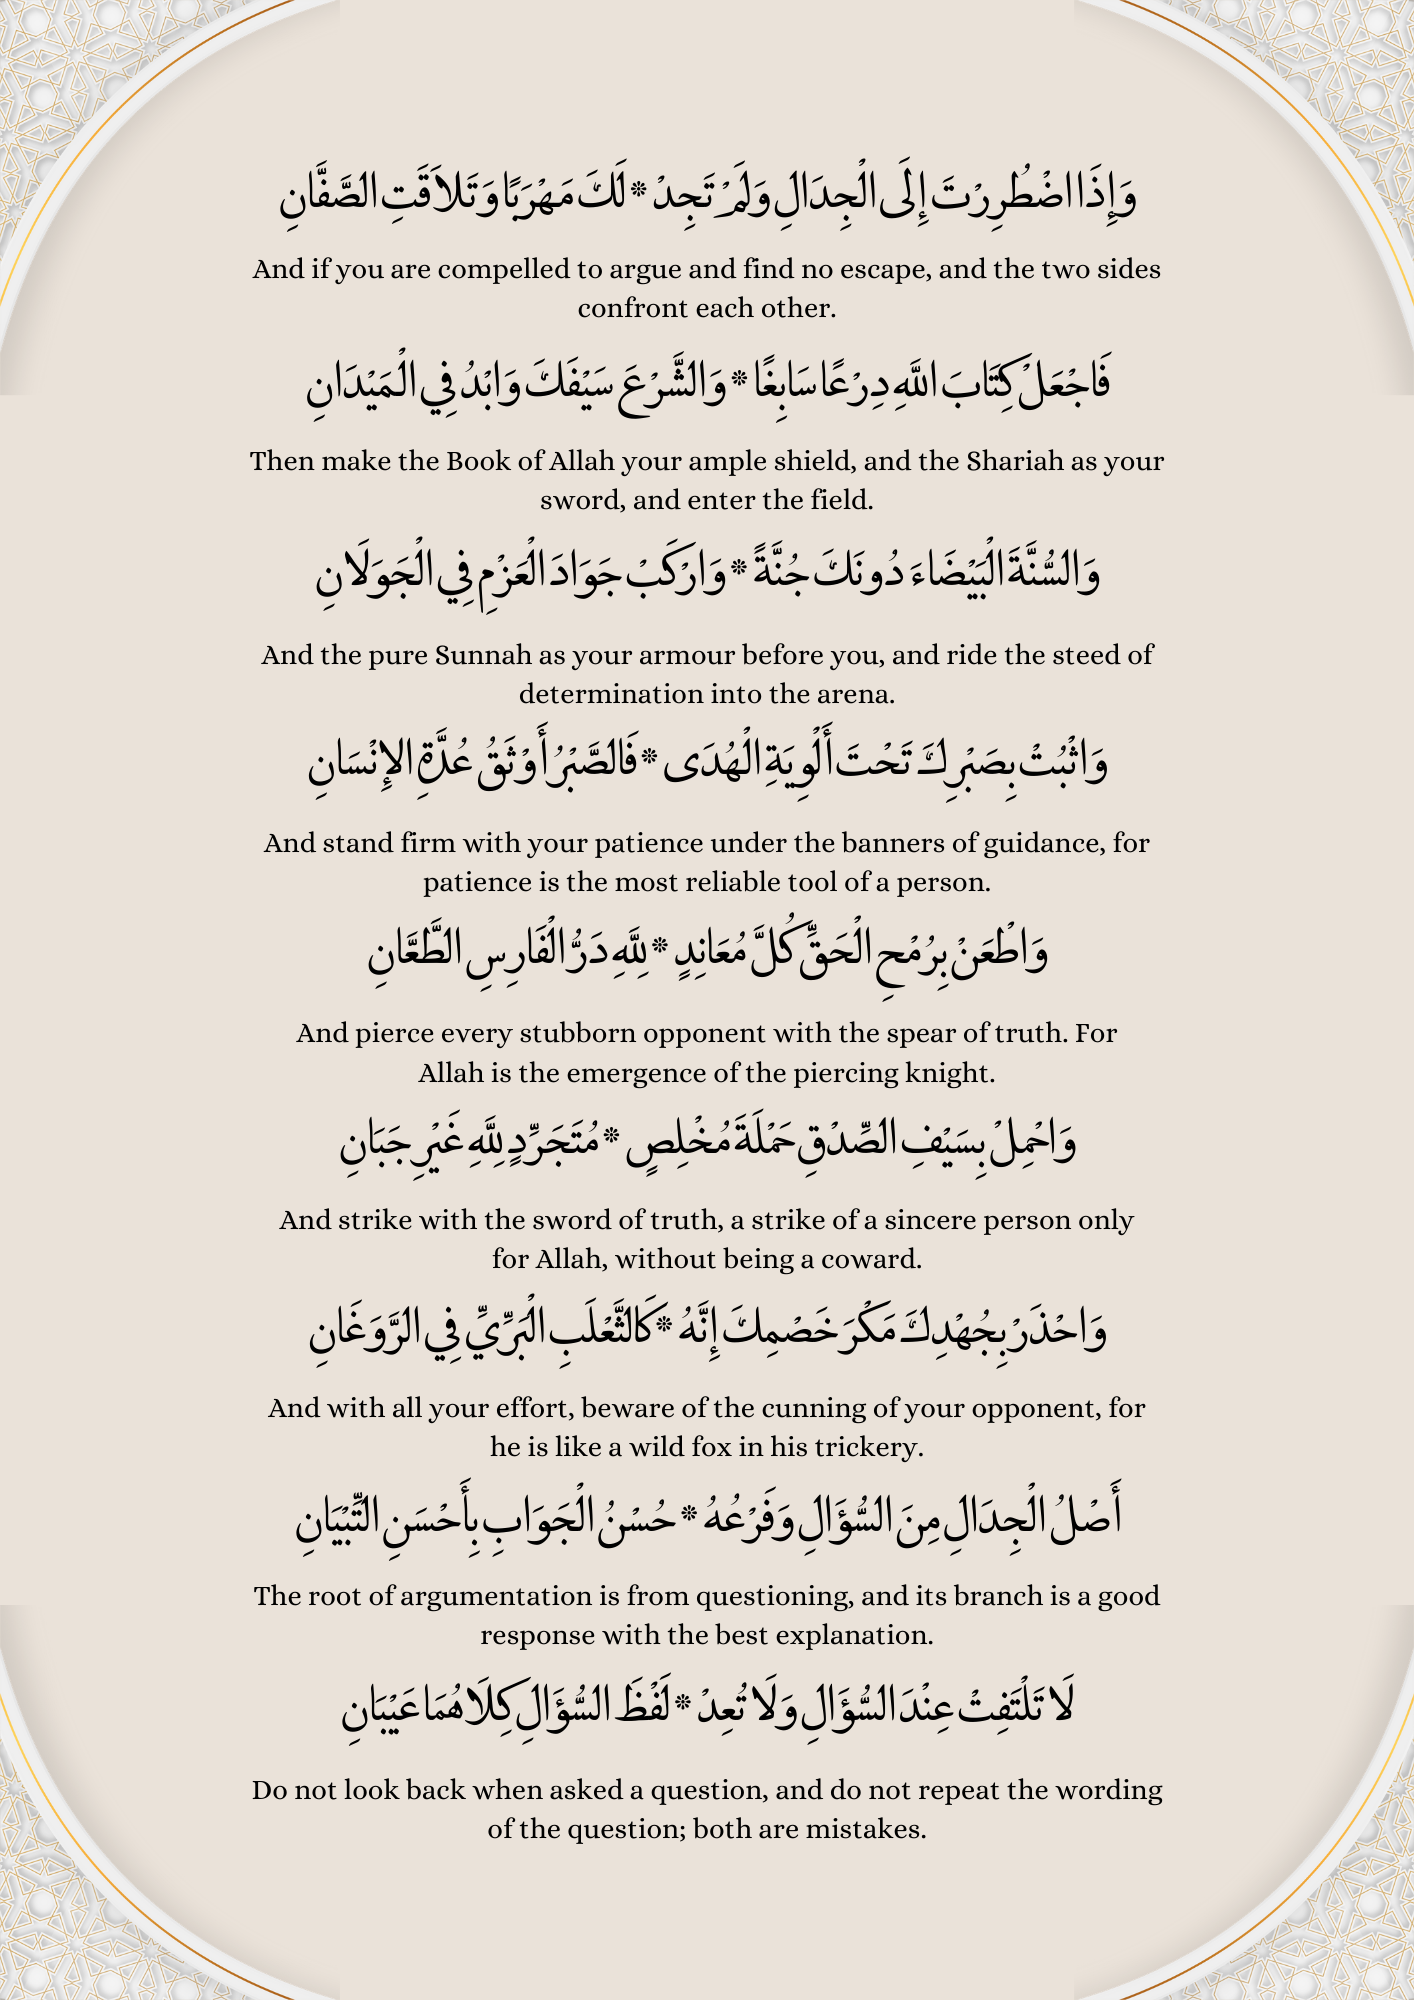 وَإِذَا اضْطُرِرْتَ إِلَى الْجِدَالِ وَلَمْ تَجِدْ * لَكَ مَهْرَبًا وَتَلاَقَتِ الصَّفَّانِ
And if you are compelled to argue and find no escape, and the two sides
confront each other.
فَاجْعَلْ كِتَابَ اللَّهِ دِرْعًا سَابِغًا * وَالشَّرْعَ سَيْفَكَ وَابْدُ فِي الْمَيْدَانِ
Then make the Book of Allah your ample shield, and the Shariah as your
sword, and enter the field.
وَالسُّنَّةَ الْبَيْضَاءَ دُونَكَ جُنَّةً * وَارْكَبْ جَوَادَ الْعَزْمِ فِي الْجَوَلَانِ
And the pure Sunnah as your armour before you, and ride the steed of
determination into the arena.
وَاثْبُتْ بِصَبْرِكَ تَحْتَ أَلْوِيَةِ الْهُدَى * فَالصَّبْرُ أَوْثَقُ عُدَّةِ الإِنْسَانِ
And stand firm with your patience under the banners of guidance, for
patience is the most reliable tool of a person.
وَاطْعَنْ بِرُمْحِ الْحَقِّ كُلَّ مُعَانِدٍ * لِلَّهِ دَرُّ الْفَارِسِ الطَّعَّانِ
And pierce every stubborn opponent with the spear of truth. For
Allah is the emergence of the piercing knight.
وَاحْمِلْ بِسَيْفِ الصِّدْقِ حَمْلَةَ مُخْلِصٍ * مُتَجَرِّدٍ لِلَّهِ غَيْرِ جَبَانِ
And strike with the sword of truth, a strike of a sincere person only
for Allah, without being a coward.
وَاحْذَرْ بِجُهْدِكَ مَكْرَ خَصْمِكَ إِنَّهُ * كَالثَّعْلَبِ الْبَرِّيِّ فِي الرَّوَغَانِ
And with all your effort, beware of the cunning of your opponent, for
he is like a wild fox in his trickery.
أَصْلُ الْجِدَالِ مِنَ السُّؤَالِ وَفَرْعُهُ * حُسْنُ الْجَوَابِ بِأَحْسَنِ التِّبْيَانِ
The root of argumentation is from questioning, and its branch is a good
response with the best explanation.
لَا تَلْتَفِتْ عِنْدَ السُّؤَالِ وَلَا تُعِدْ * لَفْظَ السُّؤَالِ كِلَاهُمَا عَيْبَانِ
Do not look back when asked a question, and do not repeat the wording
of the question; both are mistakes.